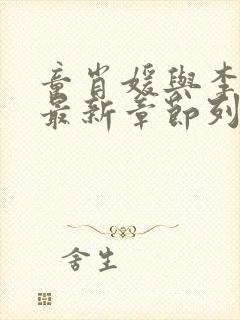 童肖媛與李
最新章節列
舍生